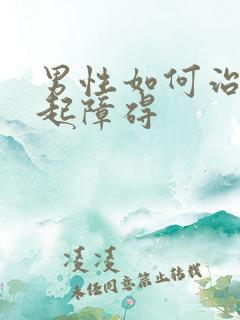 男性如何治
起障碍
凌凌
未经同意禁止转载